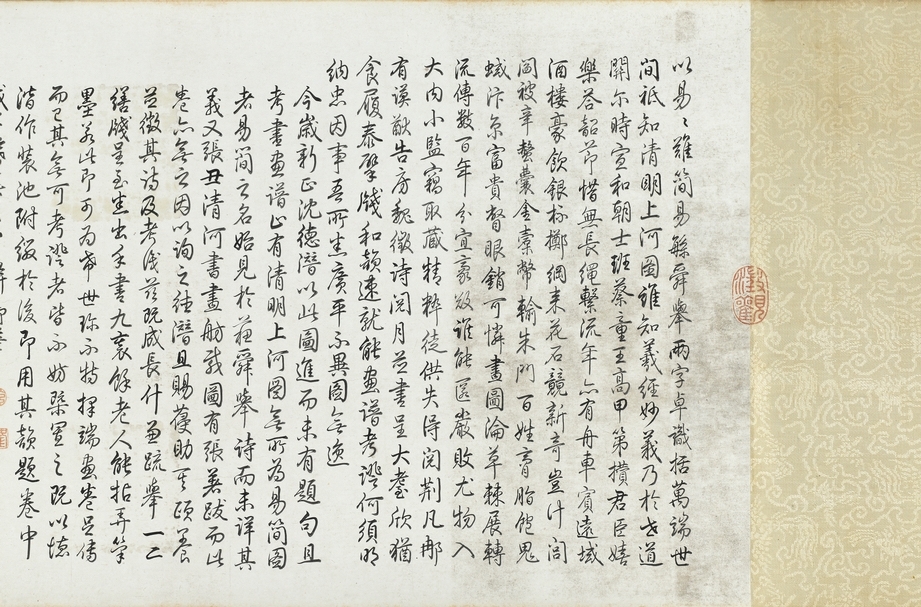 以易〻難簡易繇舜舉兩字卓識括萬端世
間祗知清明上河圖誰知羲經妙義乃於世道
關尔時宣和朝士班蔡童王高甲第攢君臣嬉
樂荅韶節惜無長繩繫流年亦有舟車賓遠域
酒樓豪飲銀杯擲綱來花石競新奇豈計閭
閻被辛螫囊金橐幣輸朱門百姓膏脂飽鬼
蜮汴京富貴瞥眼銷可憐畫圖淪草棘展轉
流傳數百年分宜豪欲誰能區嚴敗尤物入
大內小監竊取藏精粹徒供失得閱荆凡那
有謨猷告房魏徵詩閱月並書呈大耋欣猶
食履泰擘牋和韻速就能畫譜考證何須明
納忠因事吾所廣平不異圖無逸
今歲新正沈德潛以此圖進而未有題句且
考畫譜止有清明上河圖無所為易簡圖
者易簡之名始見於蘇舜舉詩而未詳其
義又張丑清河書畫舫載圖有張著跋而此
卷亦無之因以詢之德潛且賜葠助其頤養
並徵其詩及考茲既成長什兼疏舉一二
繕牋呈至出手書九袠餘老人能拈弄筆
墨若此即可為希世珍不特擇端畫卷足傳
而已其無可考證者皆不妨槩置之既以德
潛作裝池附綴於後即用其韻題卷中